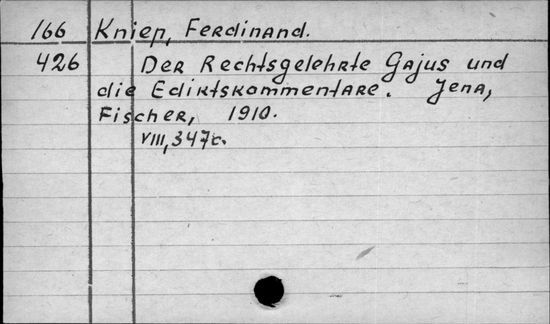 166 Kniep, Ferdinand.
426 Der Rechtsgelehrte Gajus und
die Ediktskommentare. Jena,
Fischer, 1910.
VIII, 347c.